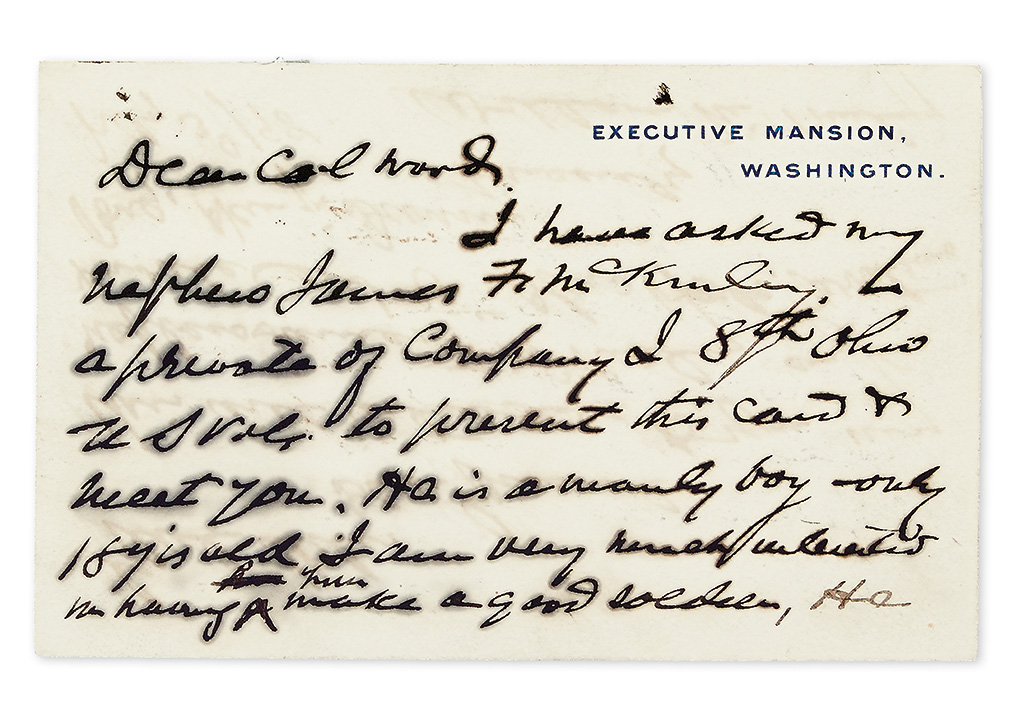 EXECUTIVE MANSION,
WASHINGTON.
Dear Col Wood.
I have asked my
nephew James F. McKinley.
a private of Company I 8th Ohio
U S Vols. to present this card &
meet you. He is a manly boy - only
18 yrs old I am very much interested
him
in having make a good soldier, He